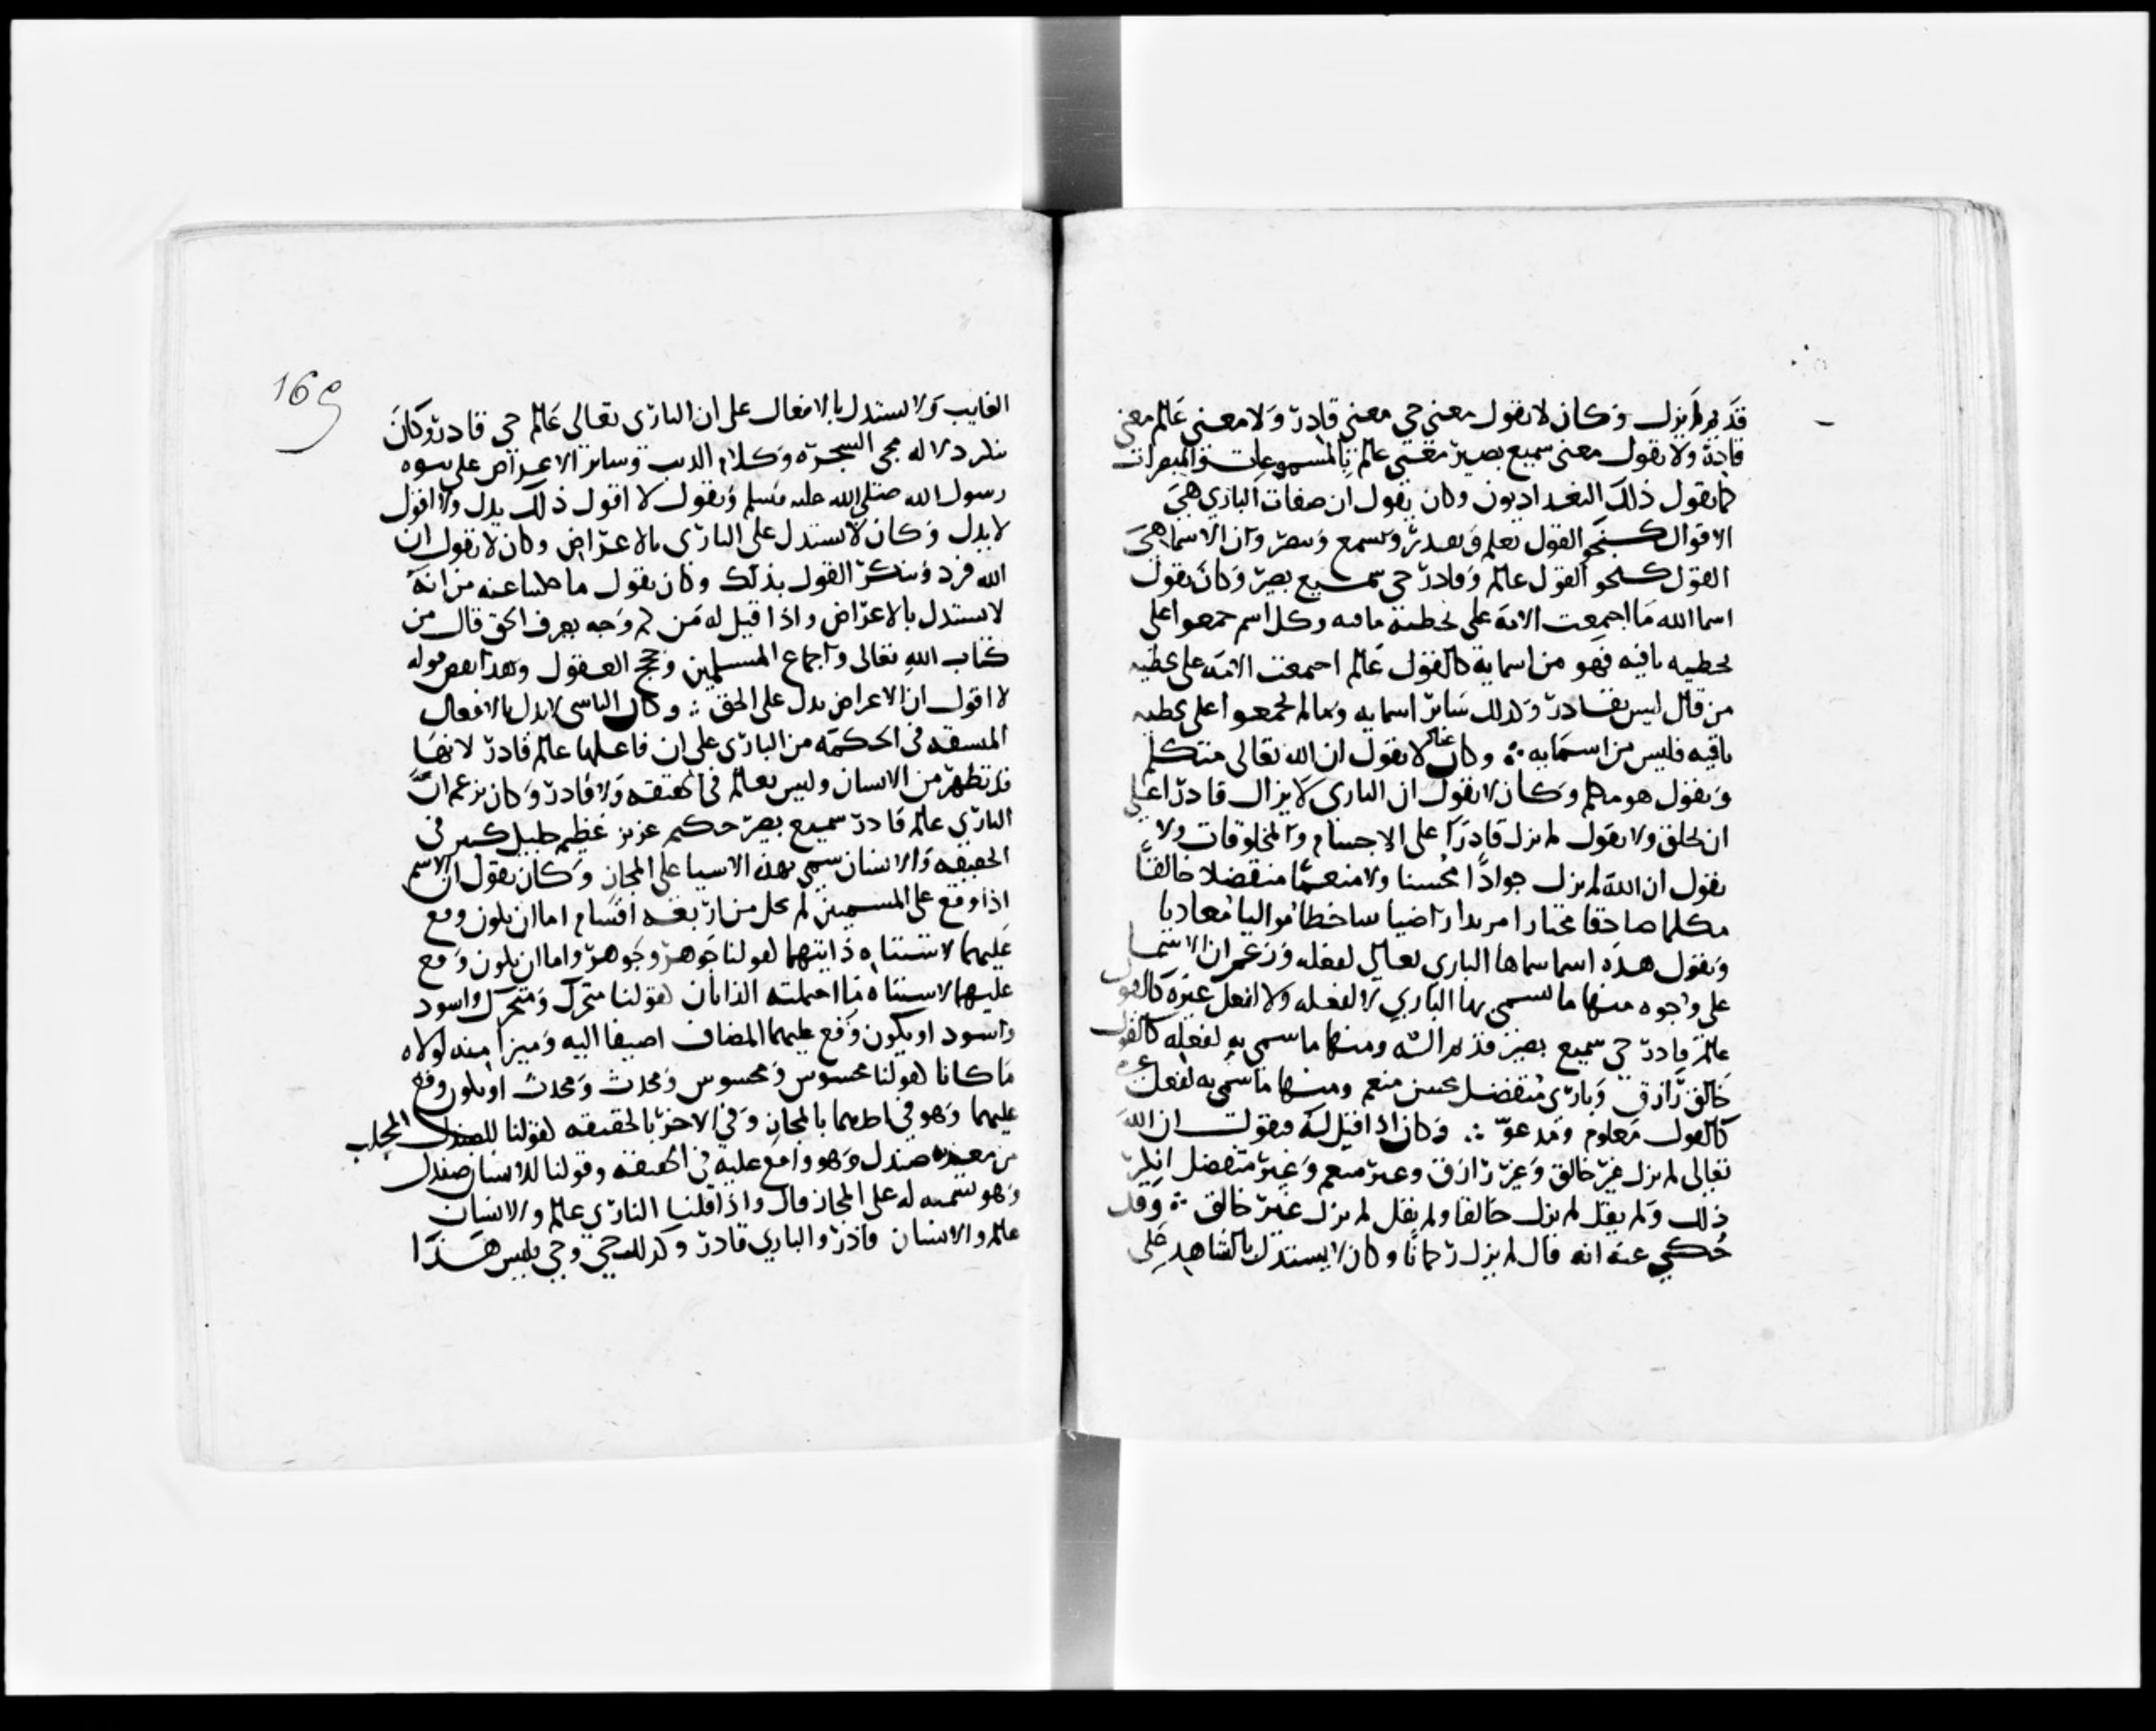 قديم لم يزل وكان لا يقول معنى حي معنى قادر ولا معنى عالم معنى
قادر ولا يقول معنى سميع بصير معنى عالم بالمسموعات والمبصرات
كما يقول ذلك البغداديون وكان يقول ان صفات الباري هي
الاقوال كنحو القول يعلم ويقدر ويسمع ويبصر وان الاسما هي
القول كنحو القول عالم وقادر حي سميع بصير وكان يقول
اسما الله ما اجمعت الامة على تخطئة نافيه وكل اسم جمعوا على
تخطيه نافيه فهو من اسمايه كالقول عالم اجمعت الامة على تخطيه
من قال ليس بقادر وكذلك سائر اسمايه وما لم يجمعوا على تخطيه
نافيه فليس من اسمايه ؞ وكان عباد لا يقول ان الله تعالى متكلم
ويقول هو مكلم وكان لا يقول ان الباري لا يزال قادرا على
ان يخلق ولا يقول لم يزل قادرا على الاجسام والمخلوقات ولا
يقول ان الله لم يزل جوادا محسنا ولا منعما متفضلا خالقا
مكلما صادقا مختارا مريدا راضيا ساخطا مواليا معاديا
ويقول هذه اسما سماها الباري تعالى لفعله وزعم ان الاسما
على وجوه منها ما يسمى بها الباري لا لفعله ولا لفعل غيره كالقول
عالم قادر حي سميع بصير قديم اله ومنها ما سمي به لفعله كالقول
خالق رازق وباري متفضل محسن منعم ومنها ما سمي به لفعل غيره
كالقول معلوم ومدعو ؞ وكان اذا قيل له فيقول ان الله
تعالى لم يزل غير خالق وغير رازق وغير منعم وغير متفضل انكر
ذلك ولم يقل لم يزل خالقا ولم يقل لم يزل غير خالق ؞ وقد
حكي عنه انه قال لم يزل رحمانا وكان لا يستدل بالشاهد على
169
الغايب ولا يستدل بالافعال على ان الباري تعالى عالم حي قادر وكان
ينكر دلاله مجي الشجرة وكلام الذيب وساير الاعراض على نبوه
رسول الله صلى الله عليه وسلم ويقول لا اقول ذلك يدل ولا اقول
لا يدل وكان لا يستدل على الباري بالاعراض وكان لا يقول ان
الله فرد وينكر القول بذلك وكان يقول ما حكينا عنه من انه
لا يستدل بالاعراض واذا قيل له فمن اي وجه يعرف الحق قال من
كتاب الله تعالى واجماع المسلمين وحجج العقول وهذا نقض قوله
لا اقول ان الاعراض تدل على الحق ؞ وكان الناشي لا يدل بالافعال
المتسقه في الحكمه من الباري على ان فاعلها عالم قادر لانها
قد تظهر من الانسان وليس بعالم في الحقيقه ولا قادر وكان يزعم ان
الباري عالم قادر سميع بصير حكيم عزيز عظيم جليل كبير في
الحقيقه والانسان سمي بهذه الاسما على المجاز وكان يقول ان الاسم
اذا وقع على المسميين لم يخل من اربعه اقسام اما ان يكون وقع
عليهما لاشتباه ذاتيهما كقولنا جوهر وجوهر واما ان يكون وقع
عليهما لاشتباه ما احتملته الذاتان كقولنا متحرك ومتحرك واسود
واسود او يكون وقع عليهما لمضاف اضيفا اليه وميزا منه لولاه
ما كانا كقولنا محسوس ومحسوس ومحدث ومحدث او يكون وقع
عليهما وهو في احدهما بالمجاز وفي الاخر بالحقيقه كقولنا للصندل المجلب
من معدنه صندل وهو واقع عليه في الحقيقه وقولنا للانسان صندل
وهو تسميه له على المجاز قال واذا قلنا الباري عالم والانسان
عالم والانسان قادر والباري قادر وكذلك حي وحي فليس هذا